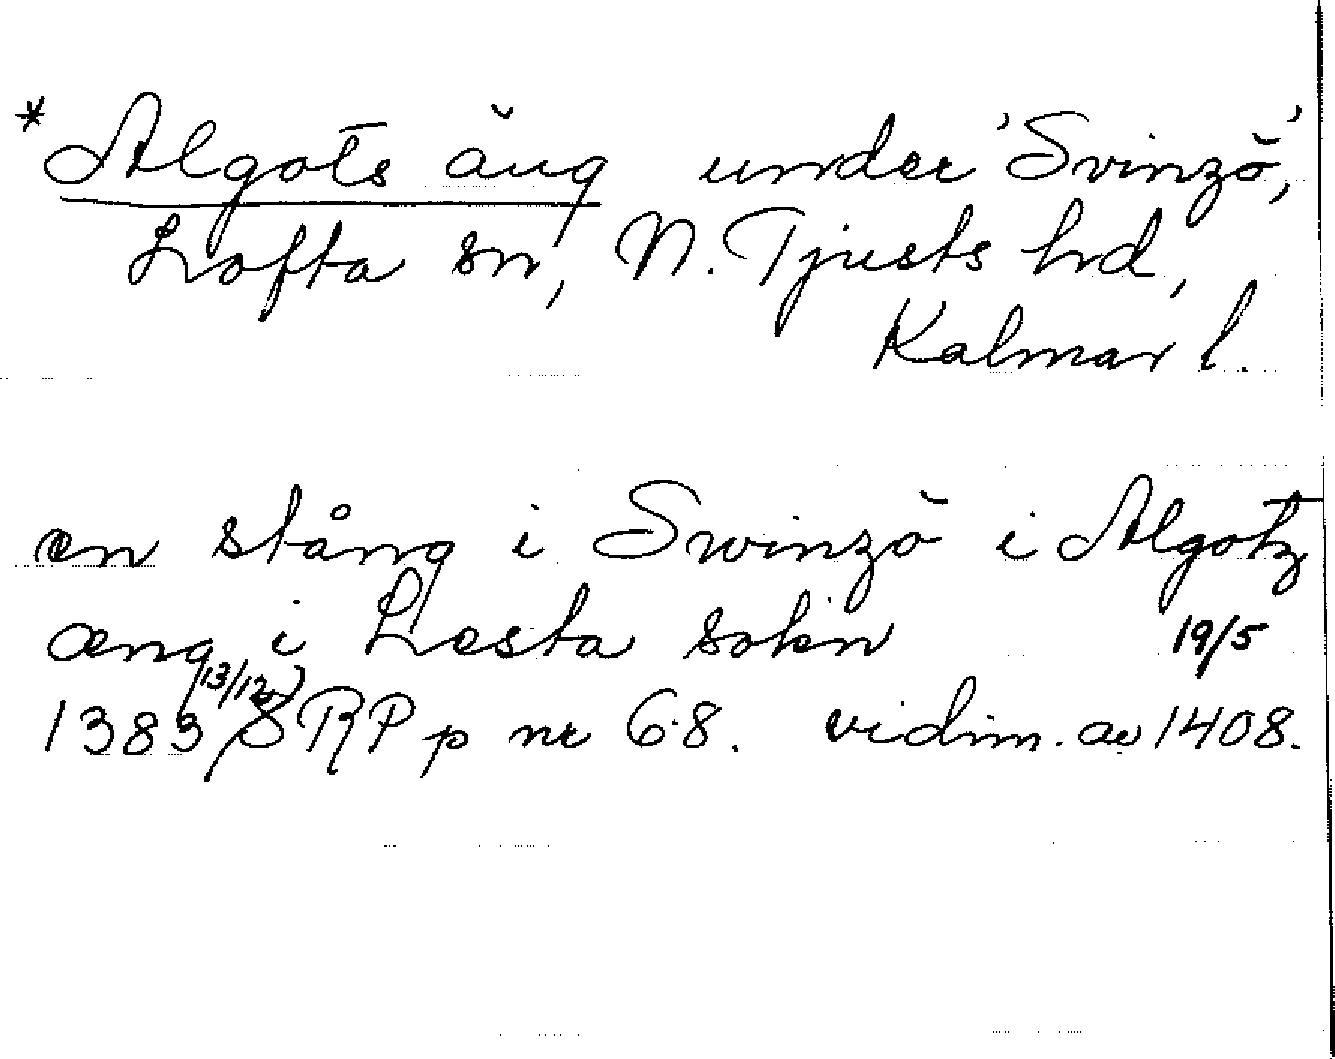 *Algots äng under 'Svinzö',
Lofta sn, N. Tjusts hd,
Kalmar l.
en stång i Swinzö i Algotz
æng i Losta sokn 19/5
1383 (13/12) SRP p nr 68. vidim. av 1408.